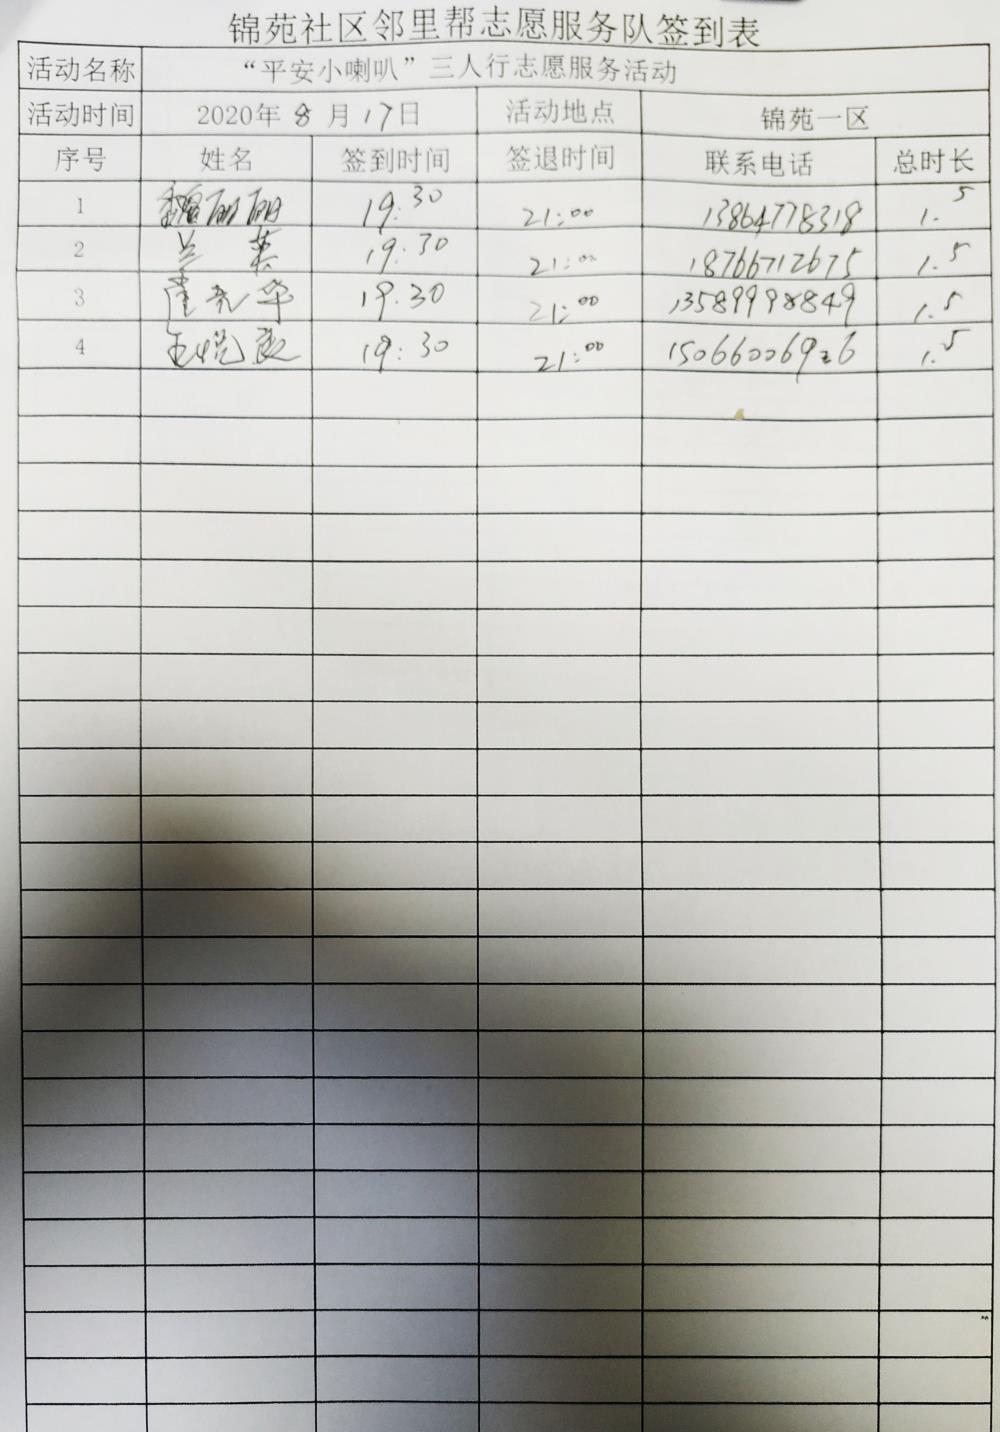 锦苑社区邻里帮志愿服务队签到表
活动名称 “平安小喇叭”三人行志愿服务活动
活动时间 2020年 8 月 17日 活动地点 锦苑一区
序号 姓名 签到时间 签退时间 联系电话 总时长
1 魏丽丽 19:30 21:00 13864778318 1.5
2 兰英 19:30 21:00 18766712675 1.5
3 19.30 21:00 13589998849 1.5
4 19:30 21:00 15066006926 1.5